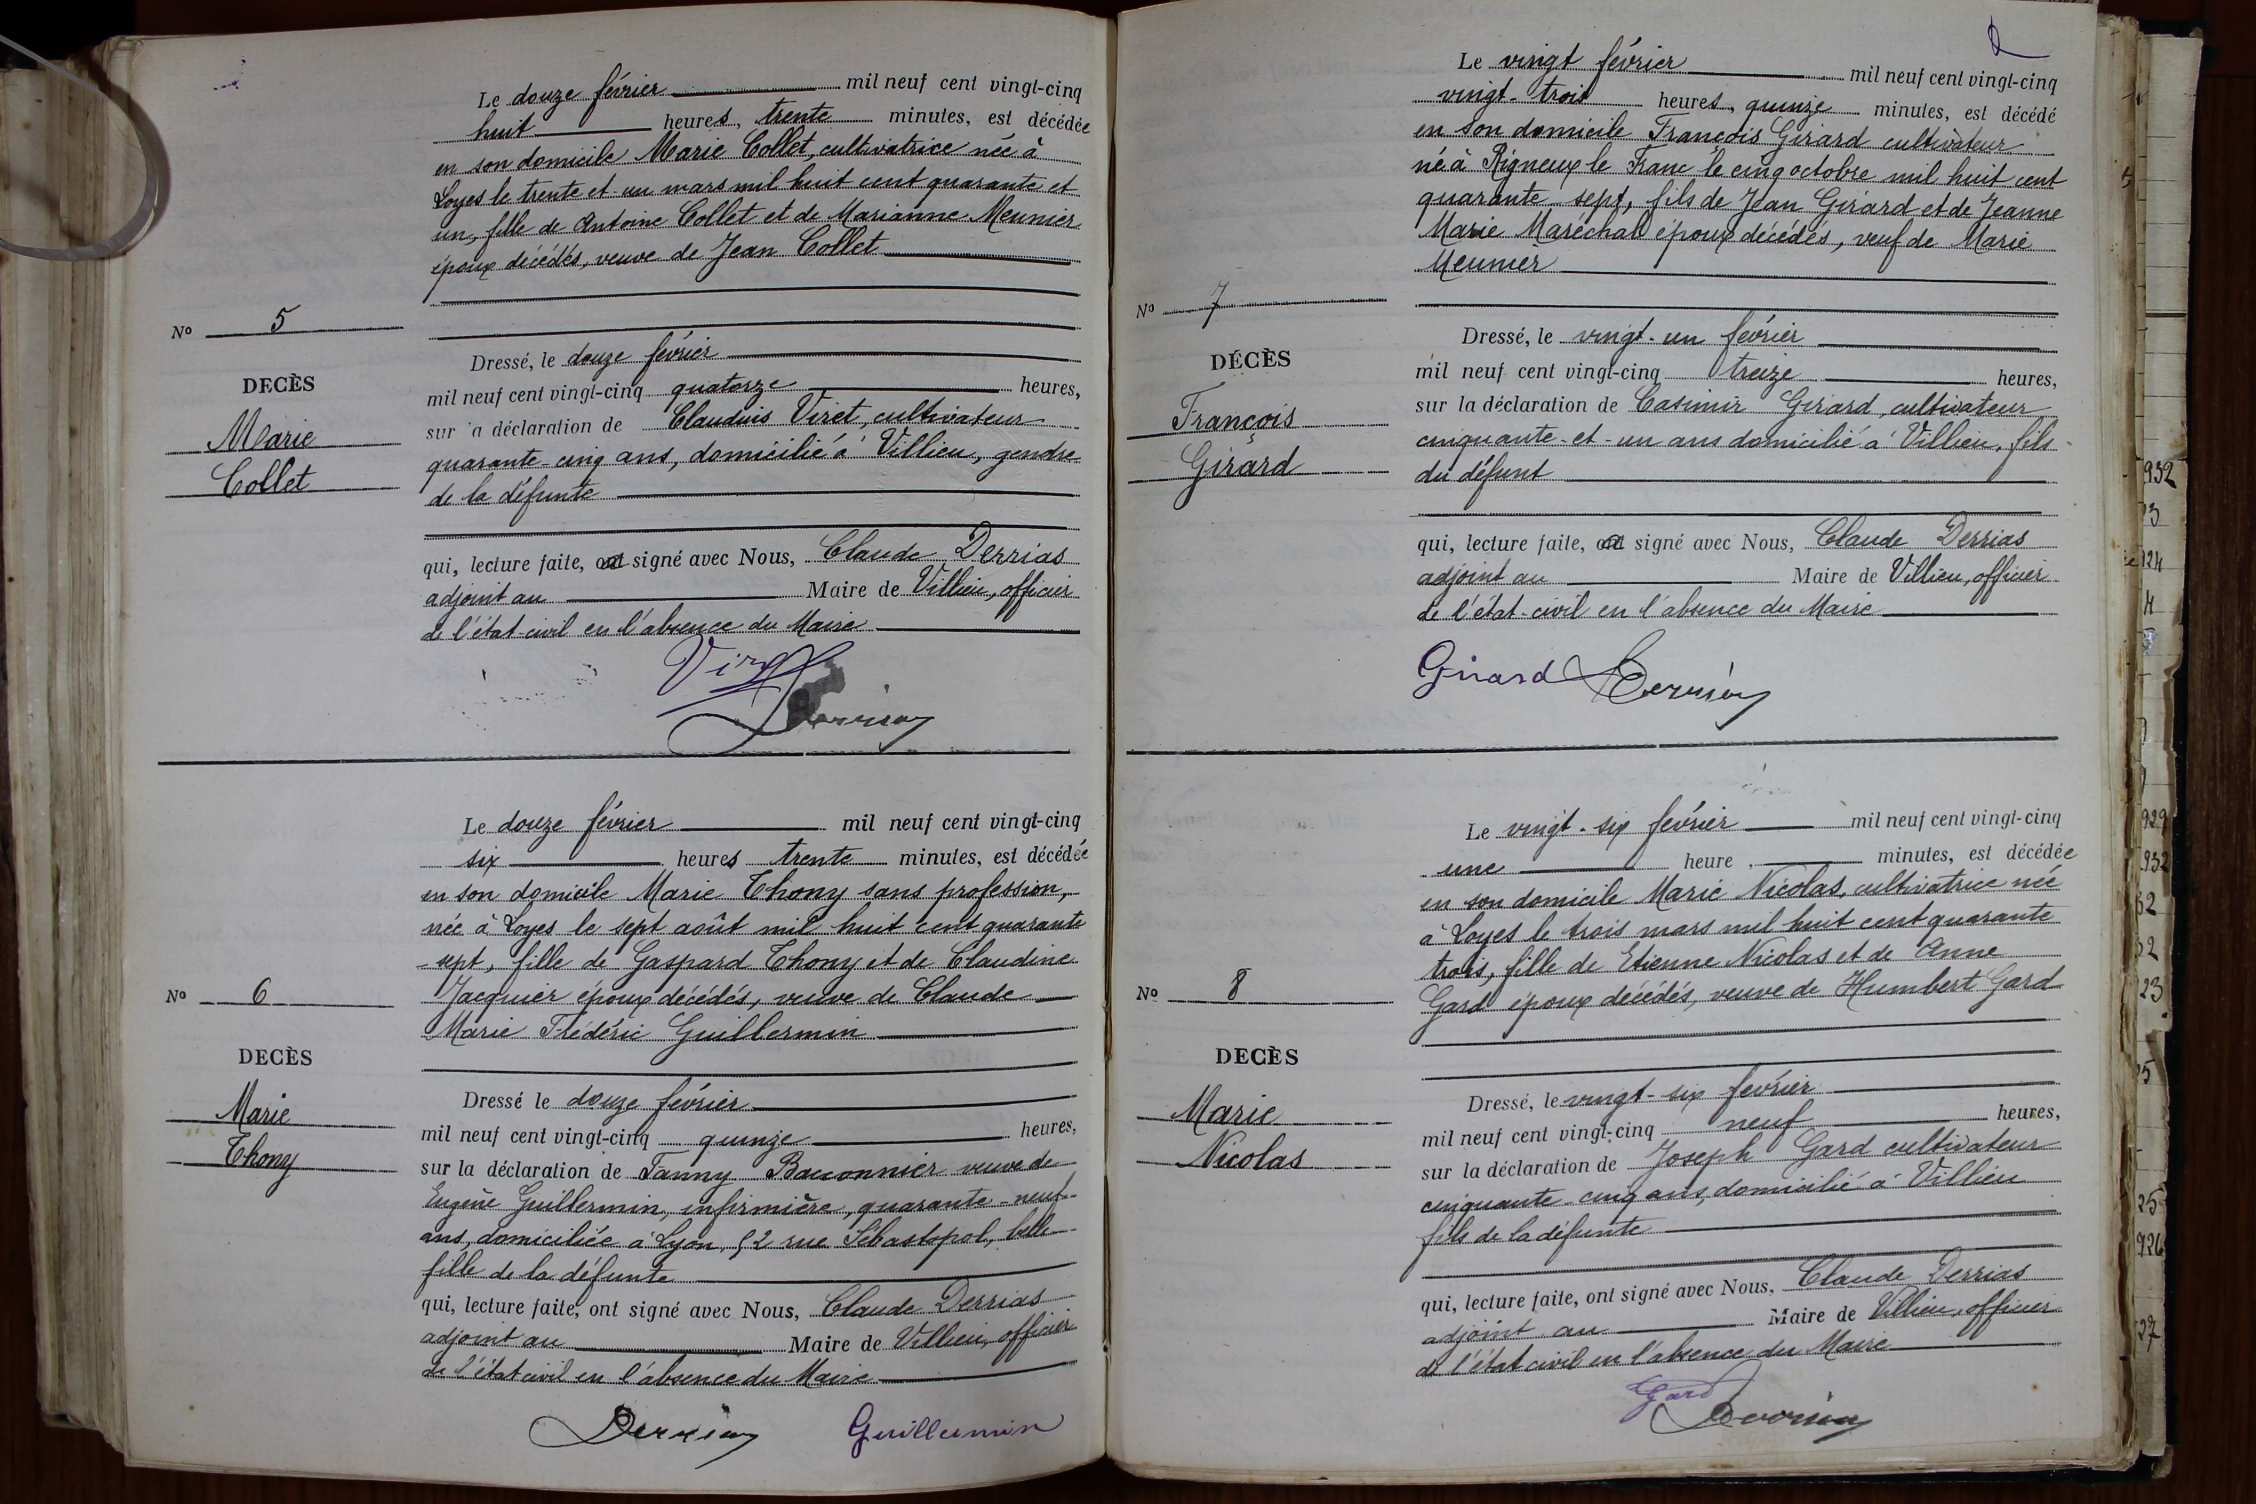 Le douze février mil neuf cent vingt-cinq
huit heures, trente minutes, est décédée
en son domicile Marie Collet, cultivatrice née à
Loyes le trente et un mars mil huit cent quarante et
un, fille de Antoine Collet et de Marianne Meunier
époux décédés, veuve de Jean Collet
No 5
DECÈS
Marie
Collet
Dressé, le douze février
mil neuf cent vingt-cinq quatorze heures,
sur a déclaration de Claudius Viret, cultivateur
quarante-cinq ans, domicilié à Villieu, gendre
de la défunte
qui, lecture faite, a signé avec Nous, Claude Derrias
adjoint au Maire de Villieu, officier
de l'état-civil en l'absence du Maire
Viret
Derrias
Le douze février mil neuf cent vingt-cinq
six heures trente minutes, est décédée
en son domicile Marie Thony sans profession,
née à Loyes le sept août mil huit cent quarante
-sept, fille de Gaspard Thony et de Claudine
Jacquier époux décédés, veuve de Claude
Marie Frédéric Guillermin
No 6
DECÈS
Marie
Thony
Dressé le douze février
mil neuf cent vingt-cinq quinze heures,
sur la déclaration de Fanny Bauonnier veuve de
Eugène Guillermin, infirmière, quarante-neuf
ans, domiciliée à Lyon, 52 rue Sébastopol, belle
fille de la défunte
qui, lecture faite, ont signé avec Nous, Claude Derrias
adjoint au Maire de Villieu, officier
de l'état civil en l'absence du Maire
Derrias Guillermin
2
Le vingt février mil neuf cent vingt-cinq
vingt-trois heures, quinze minutes, est décédé
en son domicile François Girard cultivateur
né à Rigneux le Franc le cinq octobre mil huit cent
quarante sept, fils de Jean Girard et de Jeanne
Marie Maréchal époux décédés, veuf de Marie
Meunier
No 7
DÉCÈS
François
Girard
Dressé, le vingt-un février
mil neuf cent vingt-cinq treize heures,
sur la déclaration de Casimir Girard, cultivateur
cinquante-et-un ans domicilié à Villieu, fils
du défunt
qui, lecture faite, a signé avec Nous, Claude Derrias
adjoint au Maire de Villieu, officier
de l'état-civil en l'absence du Maire
Girard Derrias
Le vingt-six février mil neuf cent vingt-cinq
une heure, minutes, est décédée
en son domicile Marie Nicolas, cultivatrice née
à Loyes le trois mars mil huit cent quarante
trois, fille de Etienne Nicolas et de Anne
Gard époux décédés, veuve de Humbert Gard
No 8
DECÈS
Marie
Nicolas
Dressé, le vingt-six février
mil neuf cent vingt-cinq neuf heures,
sur la déclaration de Joseph Gard cultivateur
cinquante-cinq ans, domicilié à Villieu
fils de la défunte
qui, lecture faite, ont signé avec Nous, Claude Derrias
adjoint au Maire de Villieu, officier
de l'état civil en l'absence du Maire
Gard
Derrias